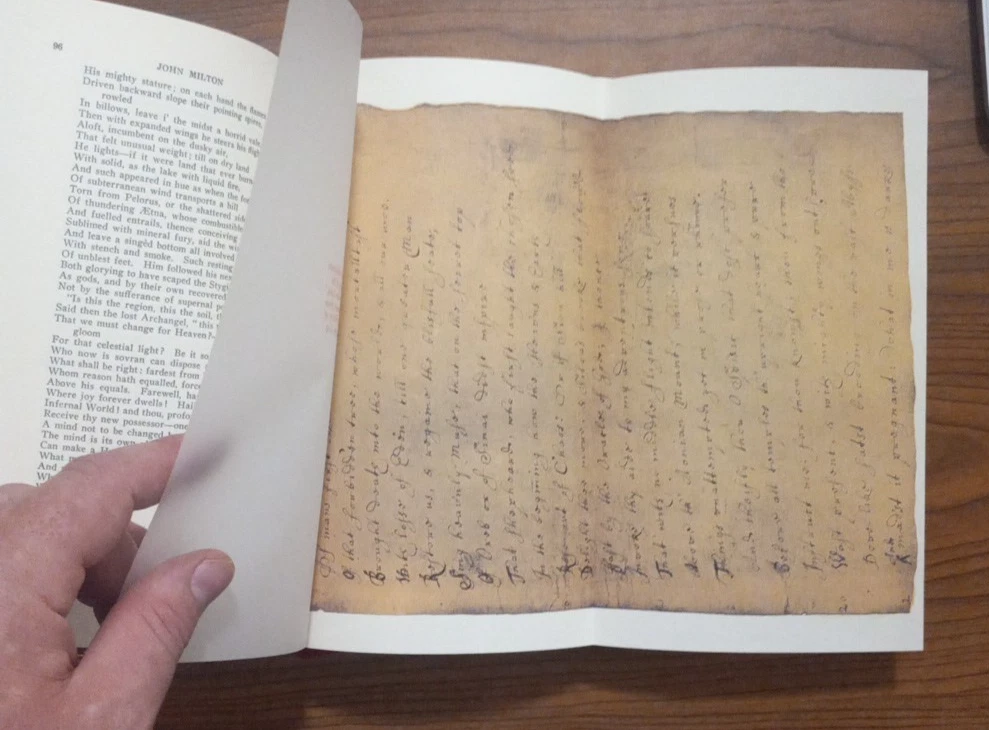 96
JOHN MILTON
His mighty stature; on each hand the
Driven backward slope their pointing
rowled
In billows, leave i' the midst a horrid
Then with expanded wings he steers his
Aloft, incumbent on the dusky air,
That felt unusual weight; till on dry land
He lights—if it were land that ever
With solid, as the lake with liquid fire,
And such appeared in hue as when the
Of subterranean wind transports a hill
Torn from Pelorus, or the shattered
Of thundering Ætna, whose combustible
And fuelled entrails, thence conceiving
Sublimed with mineral fury, aid the
And leave a singèd bottom all involved
With stench and smoke. Such resting
Of unblest feet. Him followed his
Both glorying to have scaped the
As gods, and by their own recovered
Not by the sufferance of supernal
"Is this the region, this the soil,
Said then the lost Archangel, "this
That we must change for
gloom
For that celestial light? Be it
Who now is sovran can dispose
What shall be right: fardest from
Whom reason hath equalled,
Above his equals. Farewell,
Where joy forever dwells!
Infernal World! and thou,
Receive thy new
A mind not to be changed
The mind is its own
Can make a
What
And
Of mans first
Of that forbidden tree, whose mortall tast
Brought death into the world, & all our woe,
With losse of Eden, till one greater Man
Restore us, & regaine the blissfull seate,
Sing heavnly Muse, that on the secret top
Of Oreb or of Sinai didst inspire
That Shepheard, who first taught the chosen
In the begining how the Heavns & Earth
Rose out of Chaos: Or if Sion hill
Delight thee more, & brook that
Fast by the Oracle of God; I thence
Invoke thy aide to my adventrous Song,
That with no middle flight intends to soare
Above th' Aonian Mount; while it pursues
Things unattempted yet in
And chiefly thou O Spirit that dost
Before all th' upright heart & pure
Instruct me, for thou knowst; thou from the
Wast present, & with mighty wings outspread
Dove like satst brooding on the vast
And madst it pregnant: What in me is